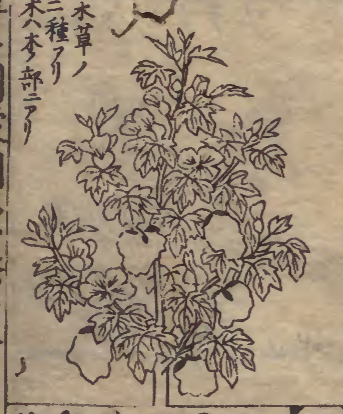 木草ノ
二種アリ
木ハ木ノ部ニアリ